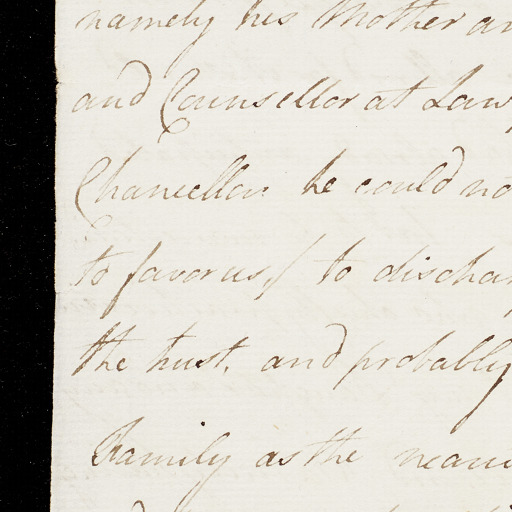 namely his Mother an
and Counsellor at Law,
Chancellor he could no
to favor us,/ to dischar
the trust, and probably
Family as the nearn